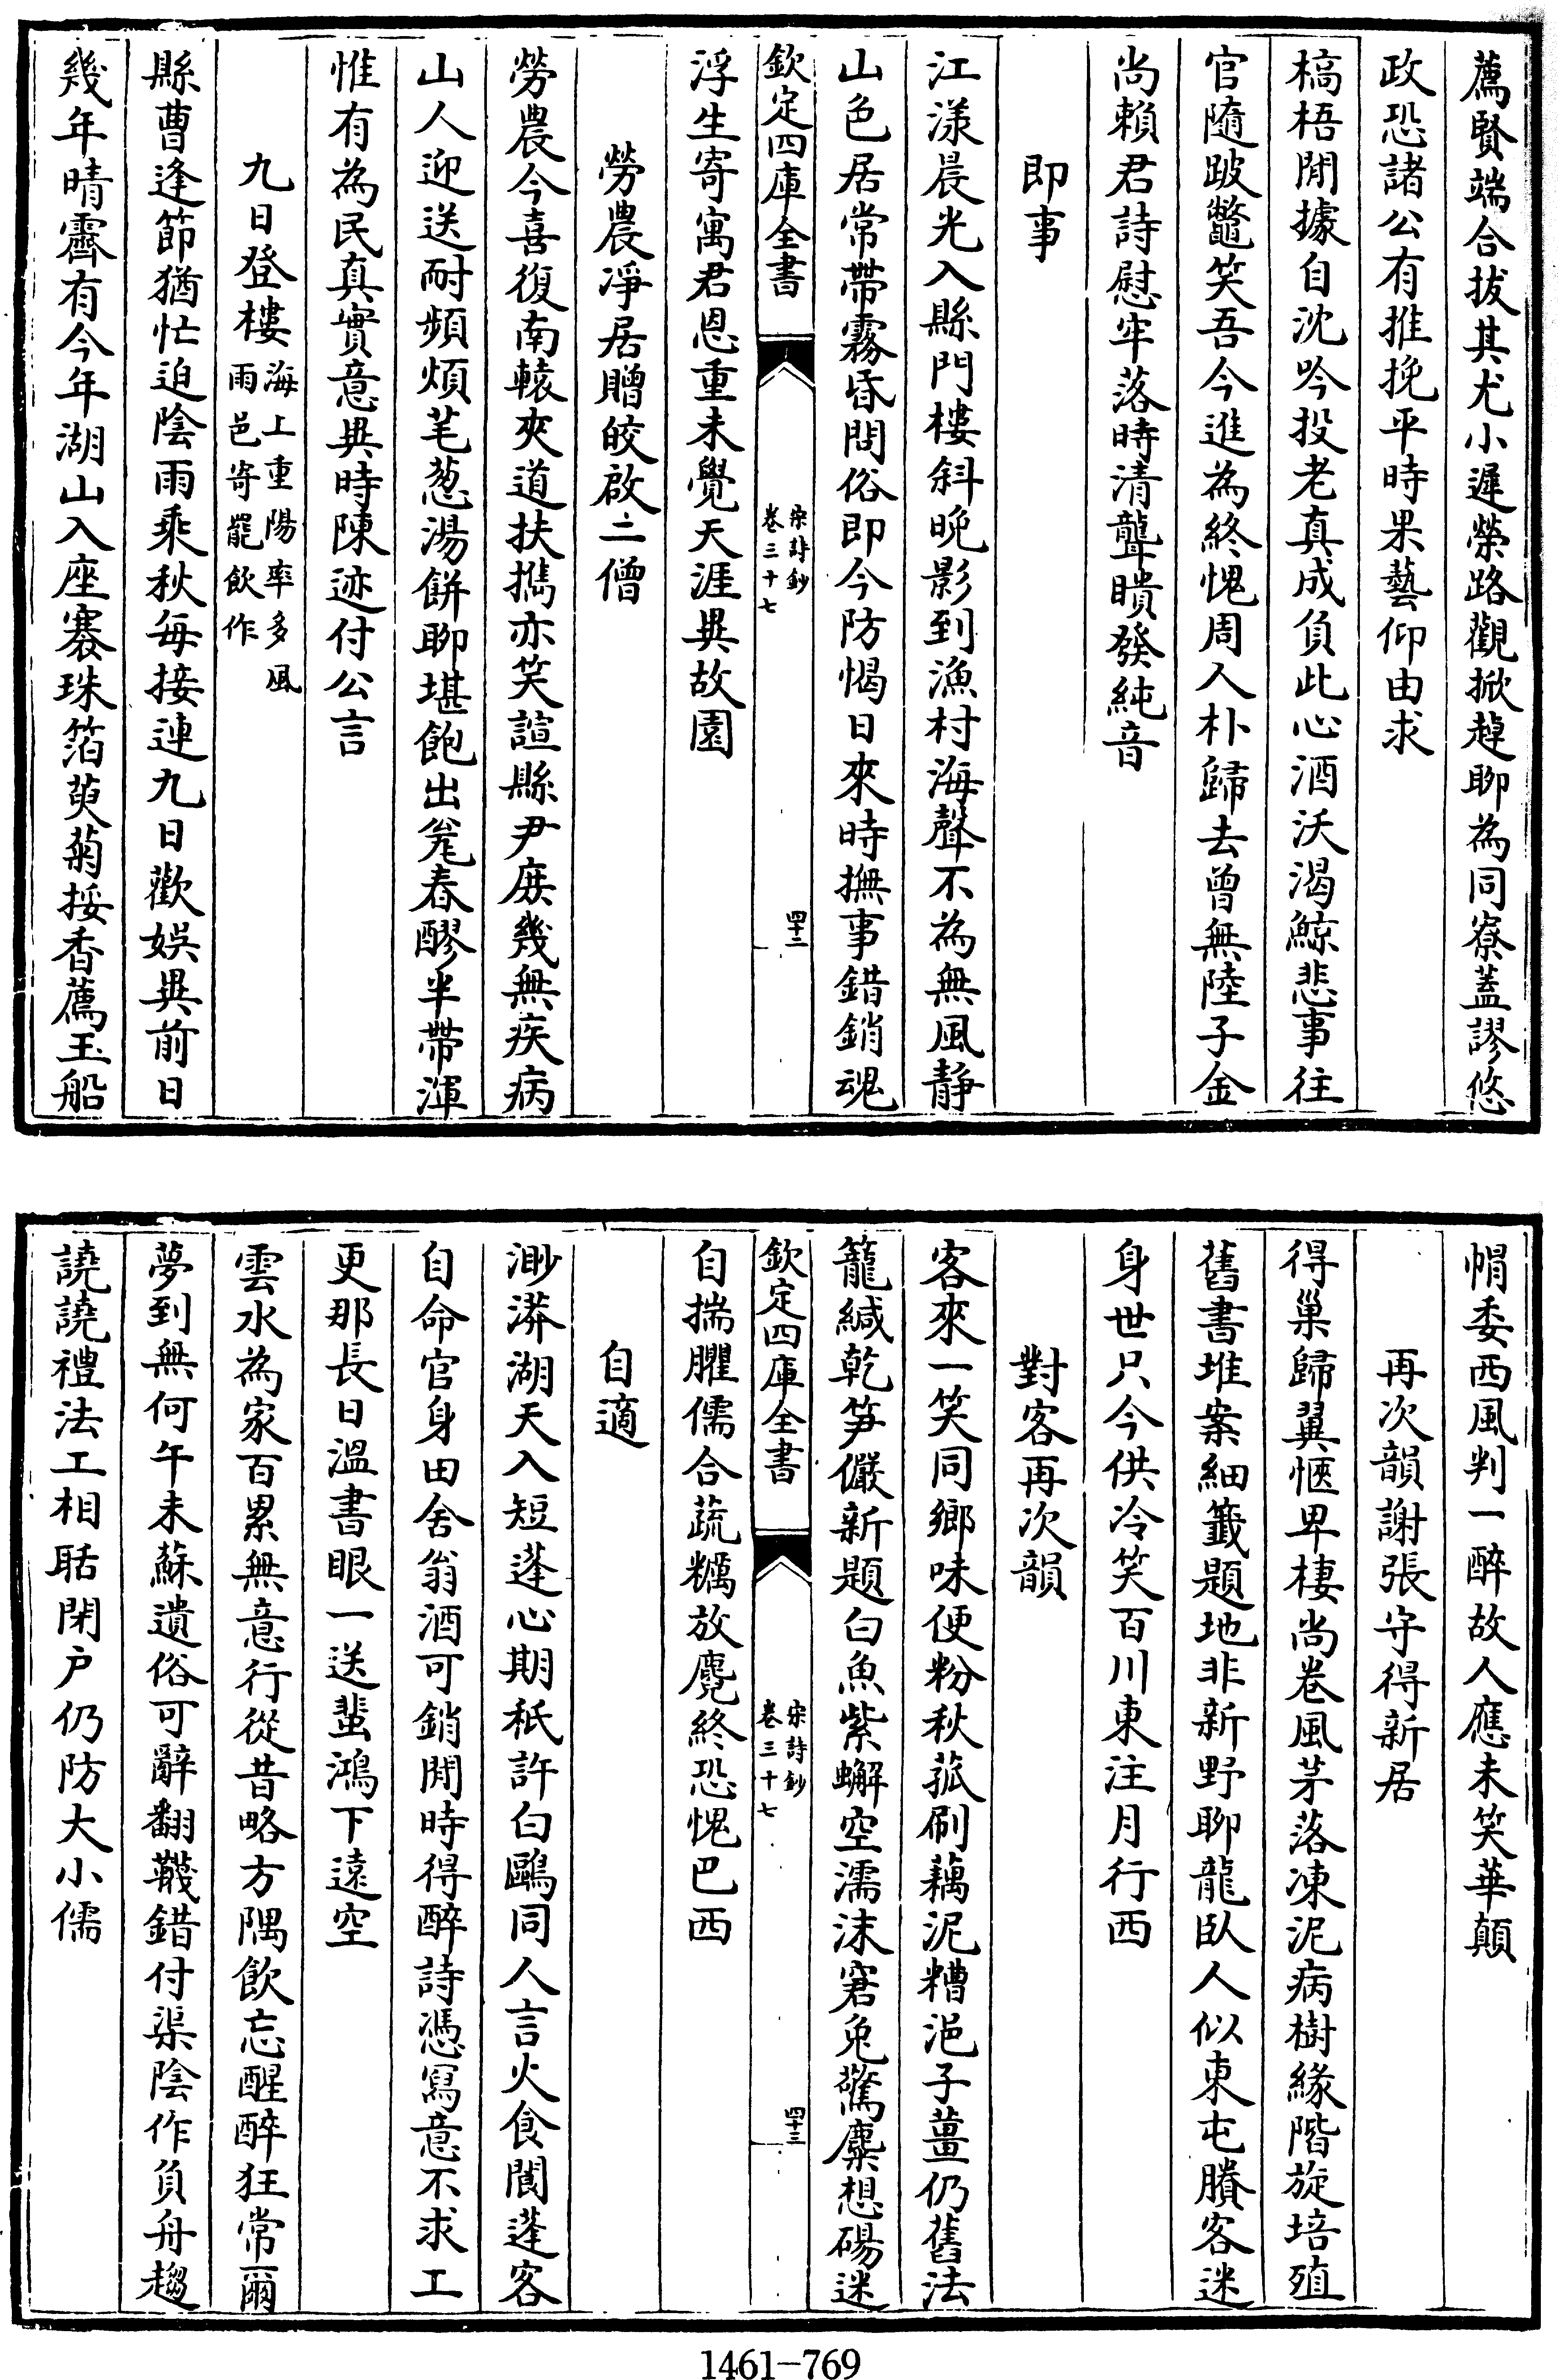 薦賢端合拔其尤小遲榮路觀掀趠聊為同寮蓋謬悠
政恐諸公有推挽平時果藝仰由求
槁梧閒據自沈吟投老真成負此心酒沃渴鯨悲事往
官隨跛鼈笑吾今進為終愧周人朴歸去曾無陸子金
尚賴君詩慰牢落時清聾瞶發純音
即事
江漾晨光入縣門樓斜晚影到漁村海聲不為無風静
山色居常帶霧昏問俗即今防愒日來時撫事錯銷魂
欽定四庫全書
宋詩鈔
卷三十七
四十二
浮生寄寓君恩重未覺天涯異故園
勞農凈居贈皎啟二僧
勞農今喜復南轅夾道扶攜亦笑諠縣尹庶幾無疾病
山人迎送耐頻煩芼葱湯餅聊堪飽出窐春醪半帶渾
惟有為民真實意異時陳迹付公言
九日登樓
海上重陽率多風
雨邑寄罷飲作
縣曹逢節猶忙迫陰雨乘秋每接連九日歡娛異前日
幾年晴霽有今年湖山入座褰珠箔萸菊挼香薦玉船
帽委西風判一醉故人應未笑華顛
再次韻謝張守得新居
得巢歸翼愜卑棲尚卷風茅落凍泥病樹緣階旋培殖
舊書堆案細籤題地非新野聊龍臥人似東屯賸客迷
身世只今供冷笑百川東注月行西
對客再次韻
客來一笑同鄉味便粉秋菰刷藕泥糟浥子薑仍舊法
籠緘乾笋儼新題白魚紫蠏空濡沫窘兔驚麋想碭迷
欽定四庫全書
宋詩鈔
卷三十七
四十三
自揣臞儒合蔬糲放麑終恐愧巴西
自適
渺漭湖天入短蓬心期秖許白鷗同人言火食閬蓬客
自命官身田舍翁酒可銷閒時得醉詩憑寫意不求工
更那長日溫書眼一送蜚鴻下遠空
雲水為家百累無意行從昔略方隅飲忘醒醉狂常爾
夢到無何午未蘇遺俗可辭翻韈錯付渠陰作負舟趨
譊譊禮法工相聒閉户仍防大小儒
1461-769